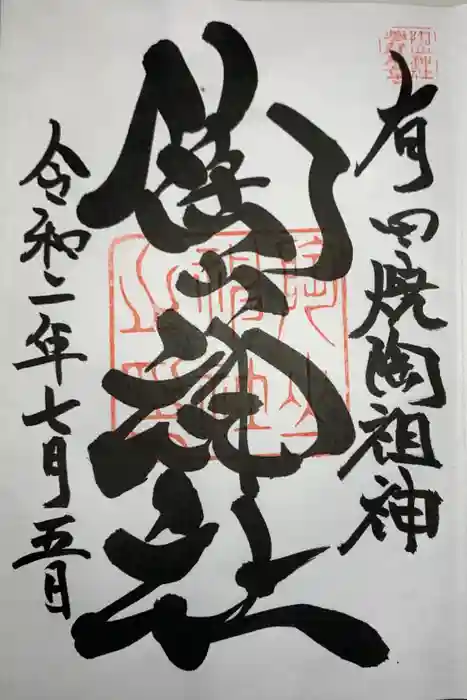 有田焼陶祖神
陶山神社
令和二年七月五日